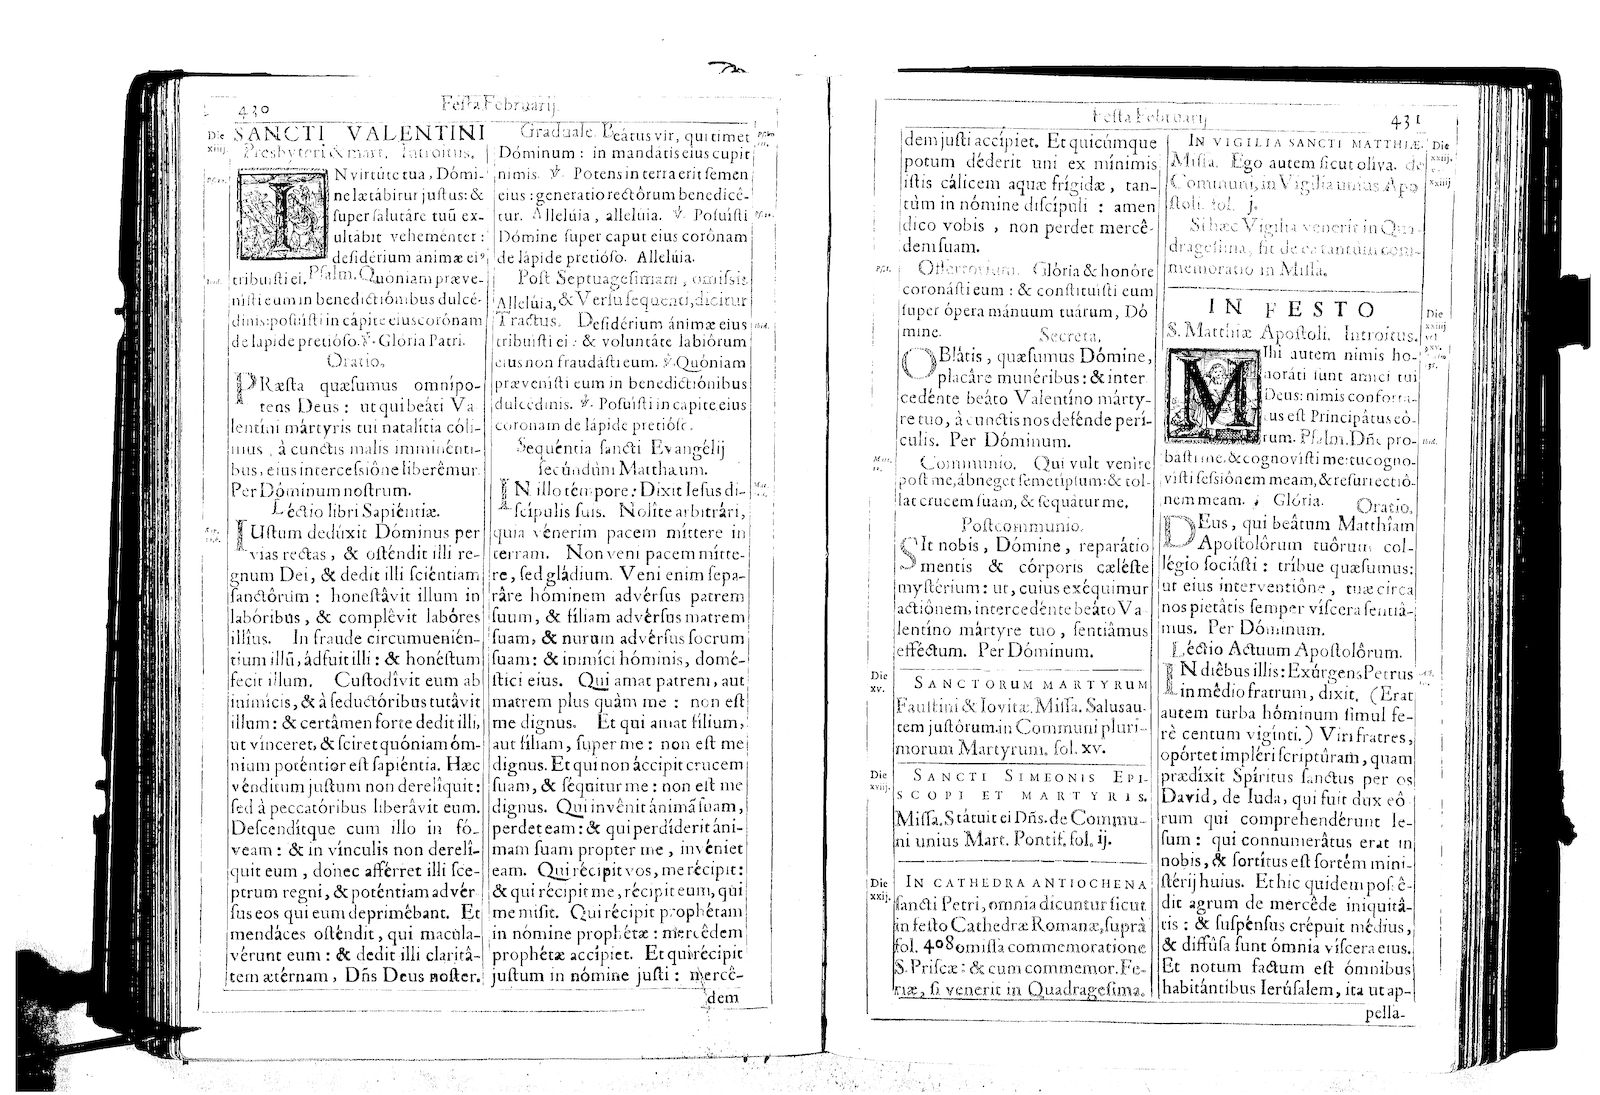 430
Festa Februarij.
Die xiiij.
SANCTI VALENTINI
Presbyteri & mart. Introitus.
IN virtúte tua, Dómi-
ne lætábitur justus: &
super salutáre tuũ ex-
ultábit veheménter:
desidérium animæ ei⁹
tribuisti ei. Psalm. Quoniam præve-
nísti eum in benedictiónibus dulcé-
dinis: posuísti in cápite ejus corónam
de lapide pretióso. ℣. Gloria Patri.
Oratio.
PRæsta quæsumus omnípo-
tens Deus: ut qui beáti Va
lentíni mártyris tui natalítia cóli-
mus, à cunctis malis imminénti-
bus, eius intercessióne liberêmur.
Per Dóminum nostrum.
Léctio libri Sapiéntiæ.
IUstum dedúxit Dóminus per
vias rectas, & osténdit illi re-
gnum Dei, & dedit illi sciéntiam
sanctórum: honestâvit illum in
labóribus, & complêvit labóres
illíus. In fraude circumuenién-
tium illũ, ádfuit illi: & honéstum
fecit illum. Custodîvit eum ab
inimícis, & à seductóribus tutâvit
illum: & certâmen forte dedit illi,
ut vínceret, & sciret quóniam óm-
nium poténtior est sapiéntia. Hæc
vénditum justum non derelíquit:
sed à peccatóribus liberâvit eum.
Descendítque cum illo in fó-
veam: & in vínculis non derelî-
quit eum, donec afférret illi sce-
ptrum regni, & poténtiam advér
sus eos qui eum deprimébant. Et
mendáces osténdit, qui macula-
vérunt eum: & dedit illi claritâ-
tem ætérnam, Dñs Deus noster.
Graduale. Beátus vir, qui timet
Dóminum: in mandátis eius cupit
nimis. ℣. Potens in terra erit semen
eius: generatio rectórum benedicé-
tur. Allelúia, allelúia. ℣. Posuísti
Dómine super caput eius corônam
de lápide pretióso. Allelúia.
Post Septuagesimam, omissis
Allelúia, & Versu sequenti, dicitur
Tractus. Desidérium ánimæ eius
tribuísti ei: & voluntáte labiórum
eius non fraudásti eum. ℣. Quóniam
prævenísti eum in benedictiónibus
dulcédinis. ℣. Posuísti in capite eius
coronam de lápide pretióso.
Sequéntia sancti Evangélij
secúndùm Matthæum.
IN illo témpore: Dixit Iesus di-
scípulis suis. Nolîte arbitrári,
quia vénerim pacem míttere in
terram. Non veni pacem mítte-
re, sed gládium. Veni enim sepa-
râre hóminem advérsus patrem
suum, & fíliam advérsus matrem
suam, & nurum advérsus socrum
suam: & inimíci hóminis, domé-
stici eius. Qui amat patrem, aut
matrem plus quàm me: non est
me dignus. Et qui amat fílium,
aut fíliam, super me: non est me
dignus. Et qui non áccipit crucem
suam, & séquitur me: non est me
dignus. Qui invênit ánimã suam,
perdet eam: & qui perdíderit áni-
mam suam propter me, invéniet
eam. Qui récipit vos, me récipit:
& qui récipit me, récipit eum, qui
me misit. Qui récipit prophétam
in nómine prophétæ: mercêdem
prophétæ accípiet. Et qui récipit
justum in nómine justi: mercê-
dem
Festa Februarij
431
dem justi accípiet. Et quicúmque
potum déderit uni ex mínimis
istis cálicem aquæ frígidæ, tan-
tùm in nómine discípuli: amen
dico vobis, non perdet mercê-
dem suam.
Offertorium. Glória & honóre
coronásti eum: & constituísti eum
super ópera mánuum tuárum, Dó
mine.
Secreta.
OBlátis, quæsumus Dómine,
placâre munéribus: & inter
cedénte beáto Valentíno márty-
re tuo, à cunctis nos defénde perí-
culis. Per Dóminum.
Communio. Qui vult venîre
post me, ábneget semetípsum: & tol-
lat crucem suam, & sequátur me.
Postcommunio.
SIt nobis, Dómine, reparátio
mentis & córporis cæléste
mystérium: ut, cuius exéquimur
actiônem, intercedénte beáto Va
lentíno mártyre tuo, sentiâmus
efféctum. Per Dóminum.
Die xv.
SANCTORUM MARTYRUM
Faustini & Iovitæ. Missa. Salus au-
tem justórum. in Communi pluri-
morum Martyrum. fol. xv.
Die xviij.
SANCTI SIMEONIS EPI-
SCOPI ET MARTYRIS.
Missa. Státuit ei Dñs. de Commu-
ni unius Mart. Pontif. fol. ij.
Die xxij.
IN CATHEDRA ANTIOCHENA
sancti Petri, omnia dicuntur sicut
in festo Cathedræ Romanæ, suprà
fol. 408 omissa commemoratione
S. Priscæ: & cum commemor. Fe-
riæ, si venerit in Quadragesima.
IN VIGILIA SANCTI MATTHIÆ.
Die xxiij.
Missa. Ego autem sicut oliva. de
Communi, in Vigilia unius Apo
stoli. fol. j.
Si hæc Vigilia venerit in Qua-
dragesima, fit de ea tantum com-
memoratio in Missa.
IN FESTO
Die xxiiij
S. Matthiæ Apostoli. Introitus.
MIhi autem nimis ho-
noráti sunt amíci tui
Deus: nimis conforta-
tus est Principátus eó-
rum. Psalm. Dñe pro-
basti me, & cognovísti me: tu cogno-
vísti sessiónem meam, & resurrectió-
nem meam. Glória. Oratio.
DEus, qui beátum Matthíam
Apostolôrum tuôrum col-
légio sociásti: tríbue quæsumus:
ut eius interventiône, tuæ circa
nos pietátis semper víscera sentiâ-
mus. Per Dóminum.
Léctio Actuum Apostolôrum.
IN diêbus illis: Exúrgens Petrus
in médio fratrum, dixit. (Erat
autem turba hóminum simul fe-
rè centum vigínti.) Viri fratres,
opórtet impléri scriptûram, quam
prædíxit Spíritus sanctus per os
David, de Iuda, qui fuit dux eô
rum qui comprehendérunt Ie-
sum: qui connumerâtus erat in
nobis, & sortítus est sortém mini-
stérij huius. Et hic quidem possê-
dit agrum de mercêde iniquitâ-
tis: & suspénsus crépuit médius,
& diffûsa sunt ómnia víscera eius.
Et notum factum est ómnibus
habitántibus Ierúsalem, ita ut ap-
pella-